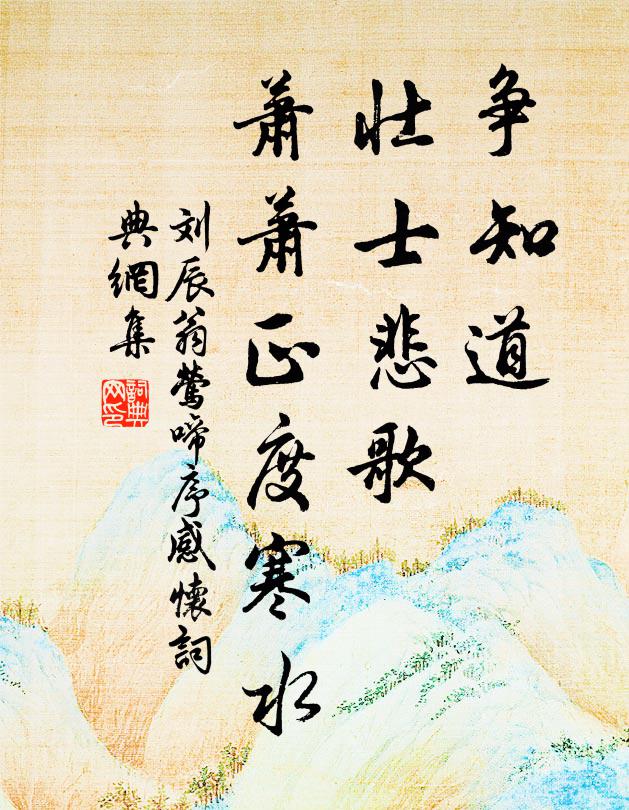 争知道
壮士悲歌
萧萧正度寒水
刘辰翁莺啼序感怀詞
典網集
詞典網印